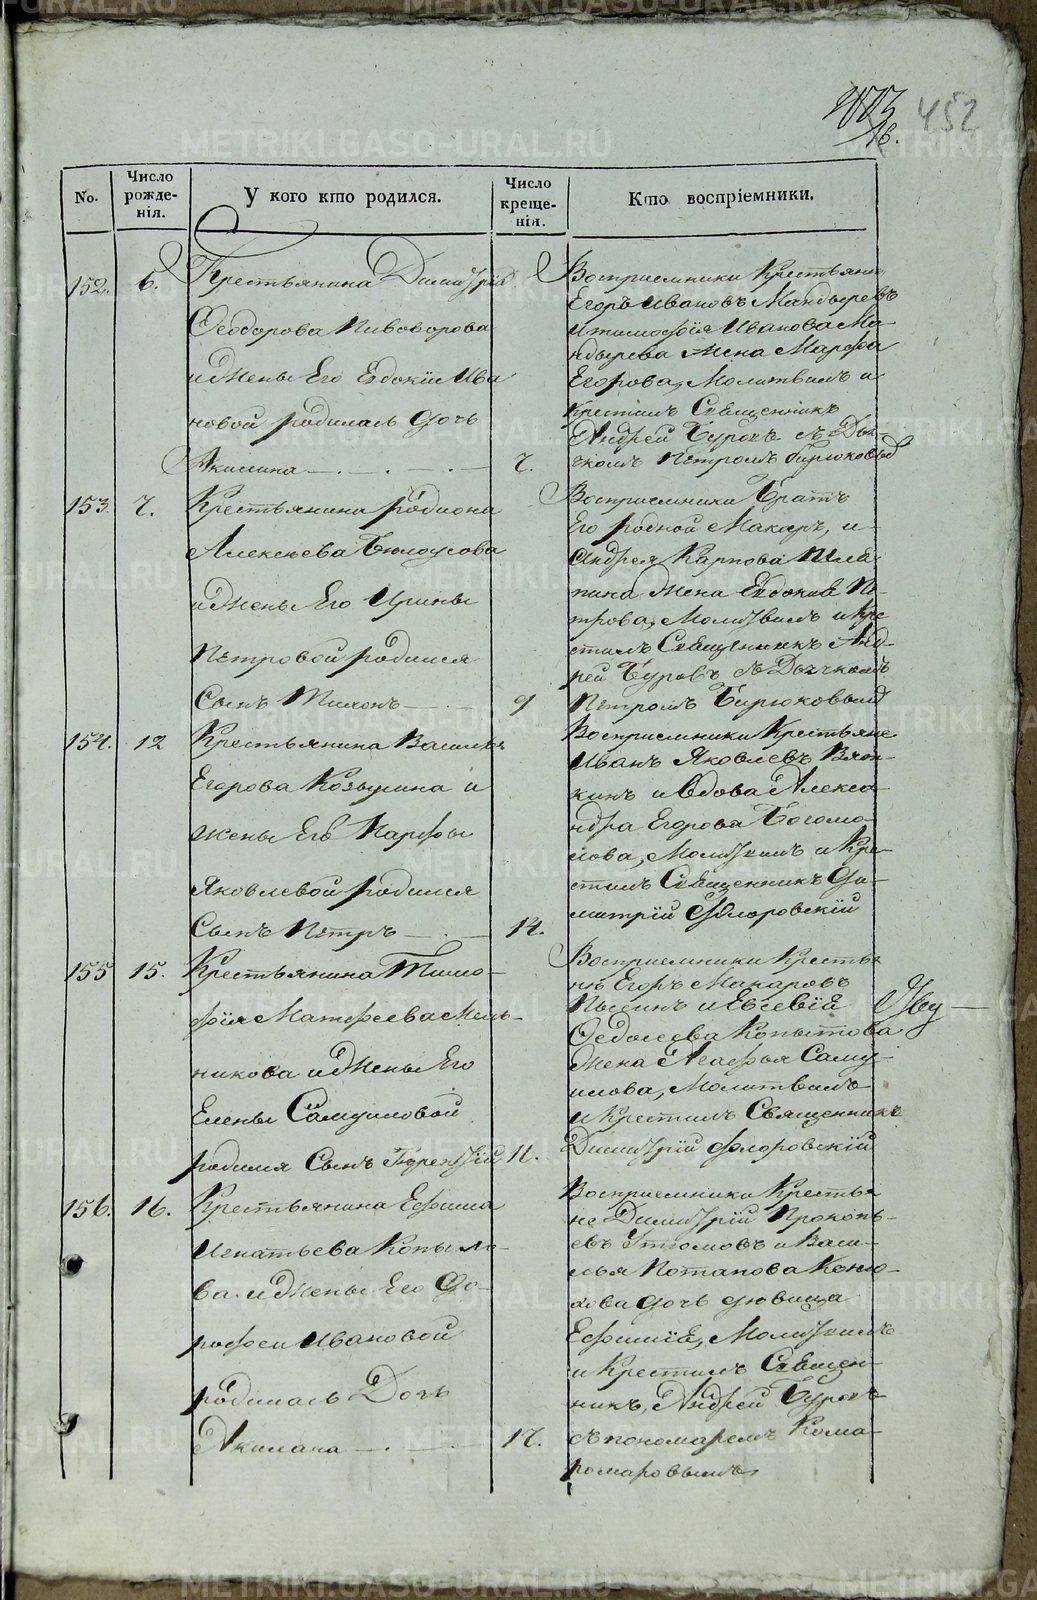 452
No.
Число рожде-нія.
У кого кто родился.
Число креще-нія.
Кто воспріемники.
152.
6.
Крестьянина Димитрія
Ѳеодорова Пивоварова
и жены Его Евдокіи Ива
новой родилась дочь
Акилина
7.
Восприемники Крестьяни
Егоръ Ивановъ Мандыревъ
и тимофѣя Иванова Ма-
ндырева жена Марфа
Егорова, Молитвилъ и
Крестилъ Священникъ
Андрей Буровъ съ Дья-
чкомъ Петромъ Бирюковыд
153.
7.
Крестьянина родиона
Алексѣева Бѣлоусова
и жены Его Ирины
Петровой родился
Сынъ Тихонъ
9
Восприемники Братъ
Его родной Макаръ, и
Андрея Карпова Шля
пина жена Евдокия Пе-
трова, Молитвилъ и Кре
стилъ Священникъ Анд-
рей Буровъ съ Дьячкомъ
Петромъ Бирюковымъ
154.
12
Крестьянина Василья
Егорова Козицина и
жены Его Марфы
Яковлевой родился
Сынъ Петръ
14.
Восприемники Крестьяне
Иванъ Яковлевъ Вят-
кинъ и вдова Алекса-
ндра Егорова Богомо-
лова, Молитвилъ и Кре-
стилъ Священникъ Ди-
митрій Флоровскій
155
15.
Крестьянина Тимо-
фѣя Матфеева Мель-
никова и жены Его
Елены Самуиловой
родился Сынъ Терентій
Восприемники Крестья
не Егоръ Макаровъ
и Евсевія
Ѳедосеева Копытова
жена Агафья Саму-
илова, Молитвилъ
и Крестилъ Священникъ
Димитрій Флоровскій
156.
16.
Крестьянина Ефима
Игнатьева Копыло-
ва и жены Его До-
рофеи Ивановой
родилась Дочь
Акилина
17.
Восприемники Крестья
не Димитрій Прокопь-
евъ и Васи-
лья Потапова Коню-
хова дочь девица
Ефимія, Молитвилъ
и Крестилъ Священ-
никъ, Андрей Буровъ
съ пономаремъ Кома-
ромаровымъ
METRIKI.GASO-URAL.RU